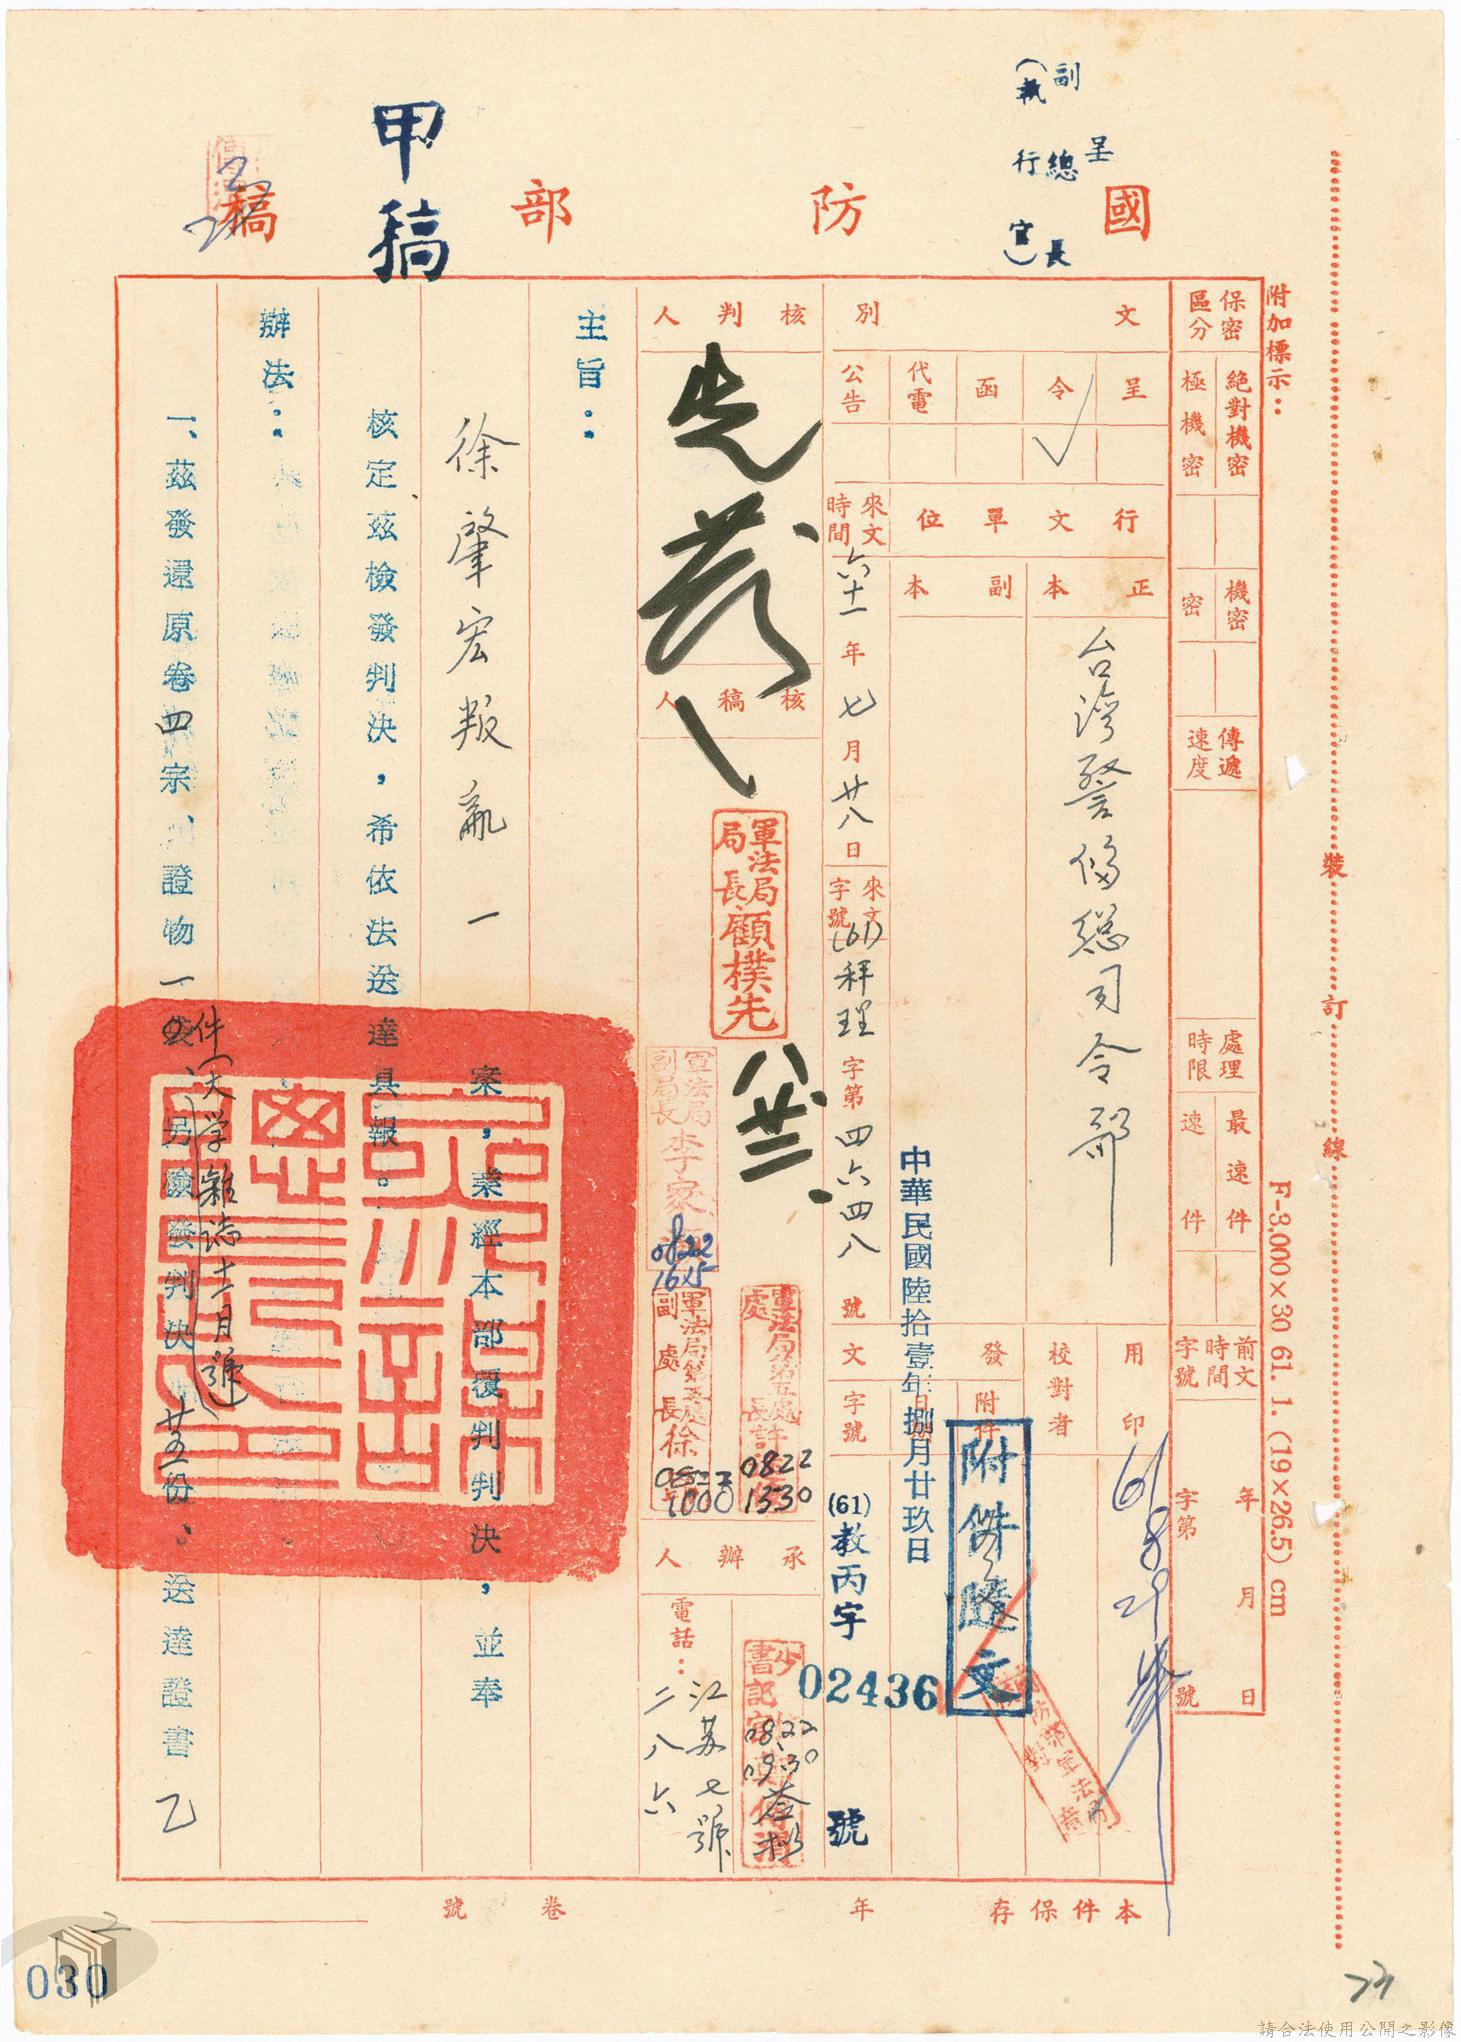 呈
副總長
(執行官)
國防部稿
甲稿
附加標示：
保密區分
絕對機密
極機密
機密
密
傳遞速度
處理時限
最速件
速件
前文時間字號
年月日
字第號
F-3,000×30 61. 1. (19×26.5) cm
裝訂線
文別
呈
令 ✓
函
代電
公告
行文單位
正本
副本
台灣警備總司令部
用印
61 8 29
校對者
發
附件
附件隨文
中華民國陸拾壹年捌月廿玖日
文
字號
(61)教丙字02436號
來文時間
六十一年七月廿八日
來文字號
(61)秤理字第四六四八號
核判人
核稿人
軍法局局長顧樸先
八
軍法局副局長李家
0822
1645
軍法局第五處處長許
0822
1330
軍法局第五處副處長徐
1000
承辦人
書記官
0822
電話：
江蘇七號
二八六
主旨：
徐肇宏叛亂一案，業經本部覆判判決，並奉
核定茲檢發判決，希依法送達具報。
辦法：
一、茲發還原卷四宗、證物一件(大學雜誌十二月號)、另檢發判決廿五份、送達證書乙
本件保存年
卷號
2
030
23
請合法使用公開之影像